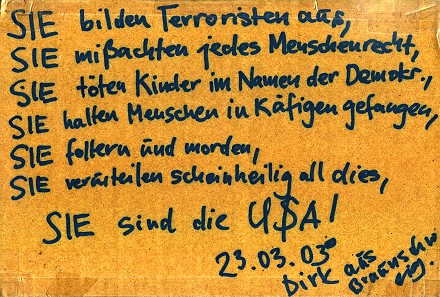 SIE bilden Terroristen aus,
SIE mißachten jedes Menschenrecht,
SIE töten Kinder im Namen der Demokr.,
SIE halten Menschen in Käfigen gefangen,
SIE foltern und morden,
SIE verurteilen scheinheilig all dies,
SIE sind die U$A!
23.03.03
Dirk aus
Braunschw
eig.